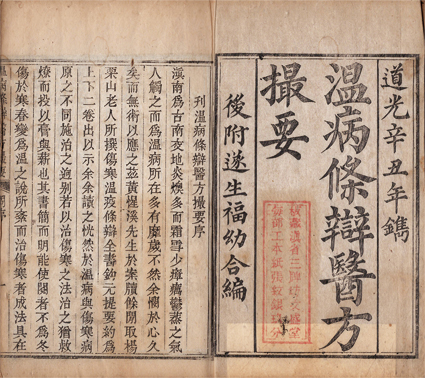 道光辛丑年鐫
溫病條辯醫方
撮要
後附遂生福幼合編
刊溫病條辯醫方撮要序
滇南為古南交地炎燠多而霜雪少瘴癘鬱蒸之氣
人觸之而為溫病所在多有靡歲不然余憫於心久
矣而無術以應之茲黃惺溪先生於案牘餘閒取楊
栗山老人所撰傷寒溫疫條辯全書鉤元提要約為
上下二卷出以示余余讀之恍然於溫病與傷寒病
原之不同施治之迥別若以治傷寒之法治之猶救
燎而投以膏與薪也其書簡而明能使閱者不為冬
傷於寒春變為溫之說所紊而治傷寒者成法具在